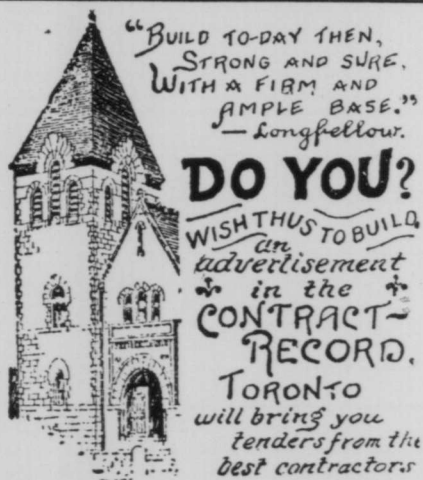 "BUILD TO-DAY THEN,
STRONG AND SURE,
WITH A FIRM AND
AMPLE BASE."
— Longfellow.
DO YOU?
WISH THUS TO BUILD,
an
advertisement
in the
CONTRACT-
RECORD.
TORONTO
will bring you
tenders from the
best contractors